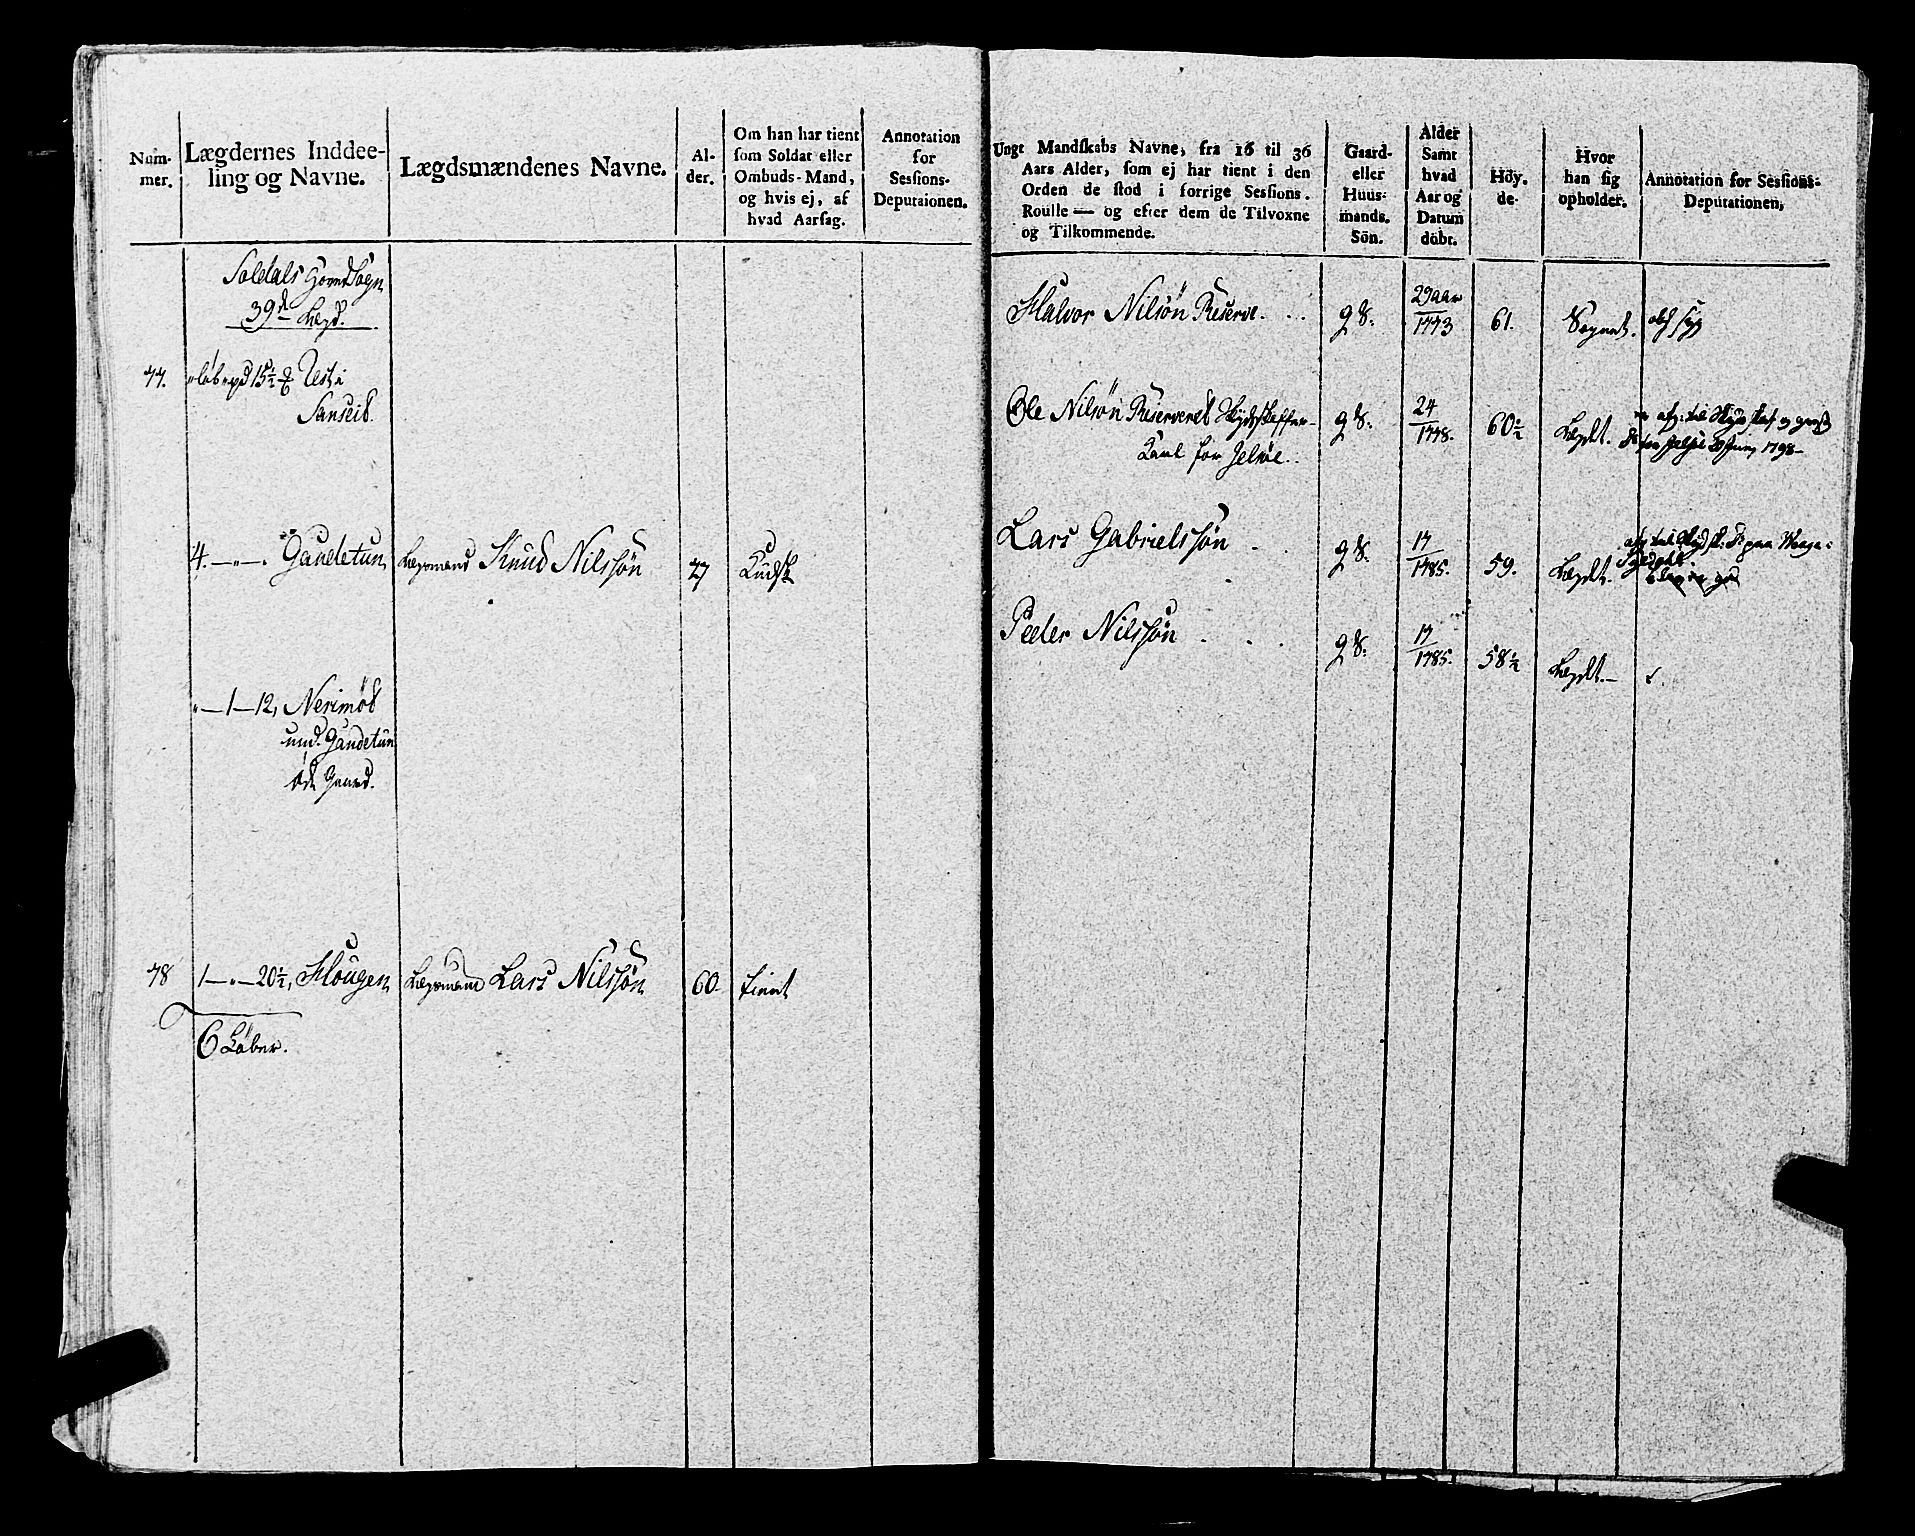 Num-
mer.
Lægdernes Inddee-
ling og Navne.
Lægdsmændenes Navne.
Al-
der.
Om han har tient
som Soldat eller
Ombuds-Mand,
og hvis ej, af
hvad Aarsag.
Annotation
for
Sessions-
Deputaionen.
Soledals Hovedsogn
39de Lægd.
77. " løb " pd 15½ Vesti
Sanseid
4. — " — . Gaudetun Lægsmand Knud Nilssøn 77 Kudsk
" — 1 — 12, Nerimöd
und. Gaudetun
öde Gaard.
78 1 — " — 20½, Hougen Lægsmand Lars Nilssøn 60 tient
6 Løber.
Ungt Mandskabs Navne, fra 16 til 36
Aars Alder, som ej har tient i den
Orden de stod i forrige Sessions.
Roulle — og efter dem de Tilvoxne
og Tilkommende.
Gaard-
eller
Huus-
mands.
Sön.
Alder
Samt
hvad
Aar og
Datum
döbt.
Höy.
de.
Hvor
han sig
opholder.
Annotation for Sessions-
Deputationen,
Halvor Nilsøn Reserve. g S. 29 aar 1773 61. Sognet.
Ole Nilsøn Reserveret Skydskaffer- g S. 24 1778. 60½ Lægdt.
Karl for Jelsøe. 1798-
Lars Gabrielssøn g S. 17 1785. 59. Lægdt.
Peder Nilssøn g S. 17 1785. 58½ Lægdt.